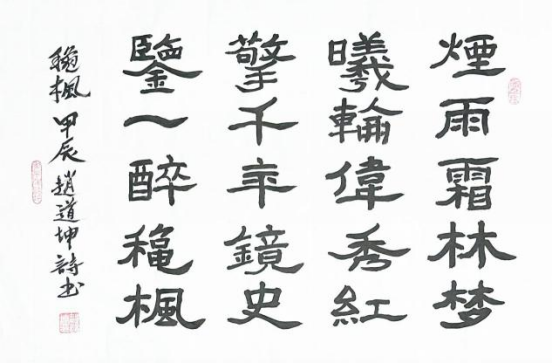 煙雨霜林梦
曦輪偉秀紅
擎千年鏡史
鑒一醉穐楓
穐楓 甲辰 趙道坤詩书